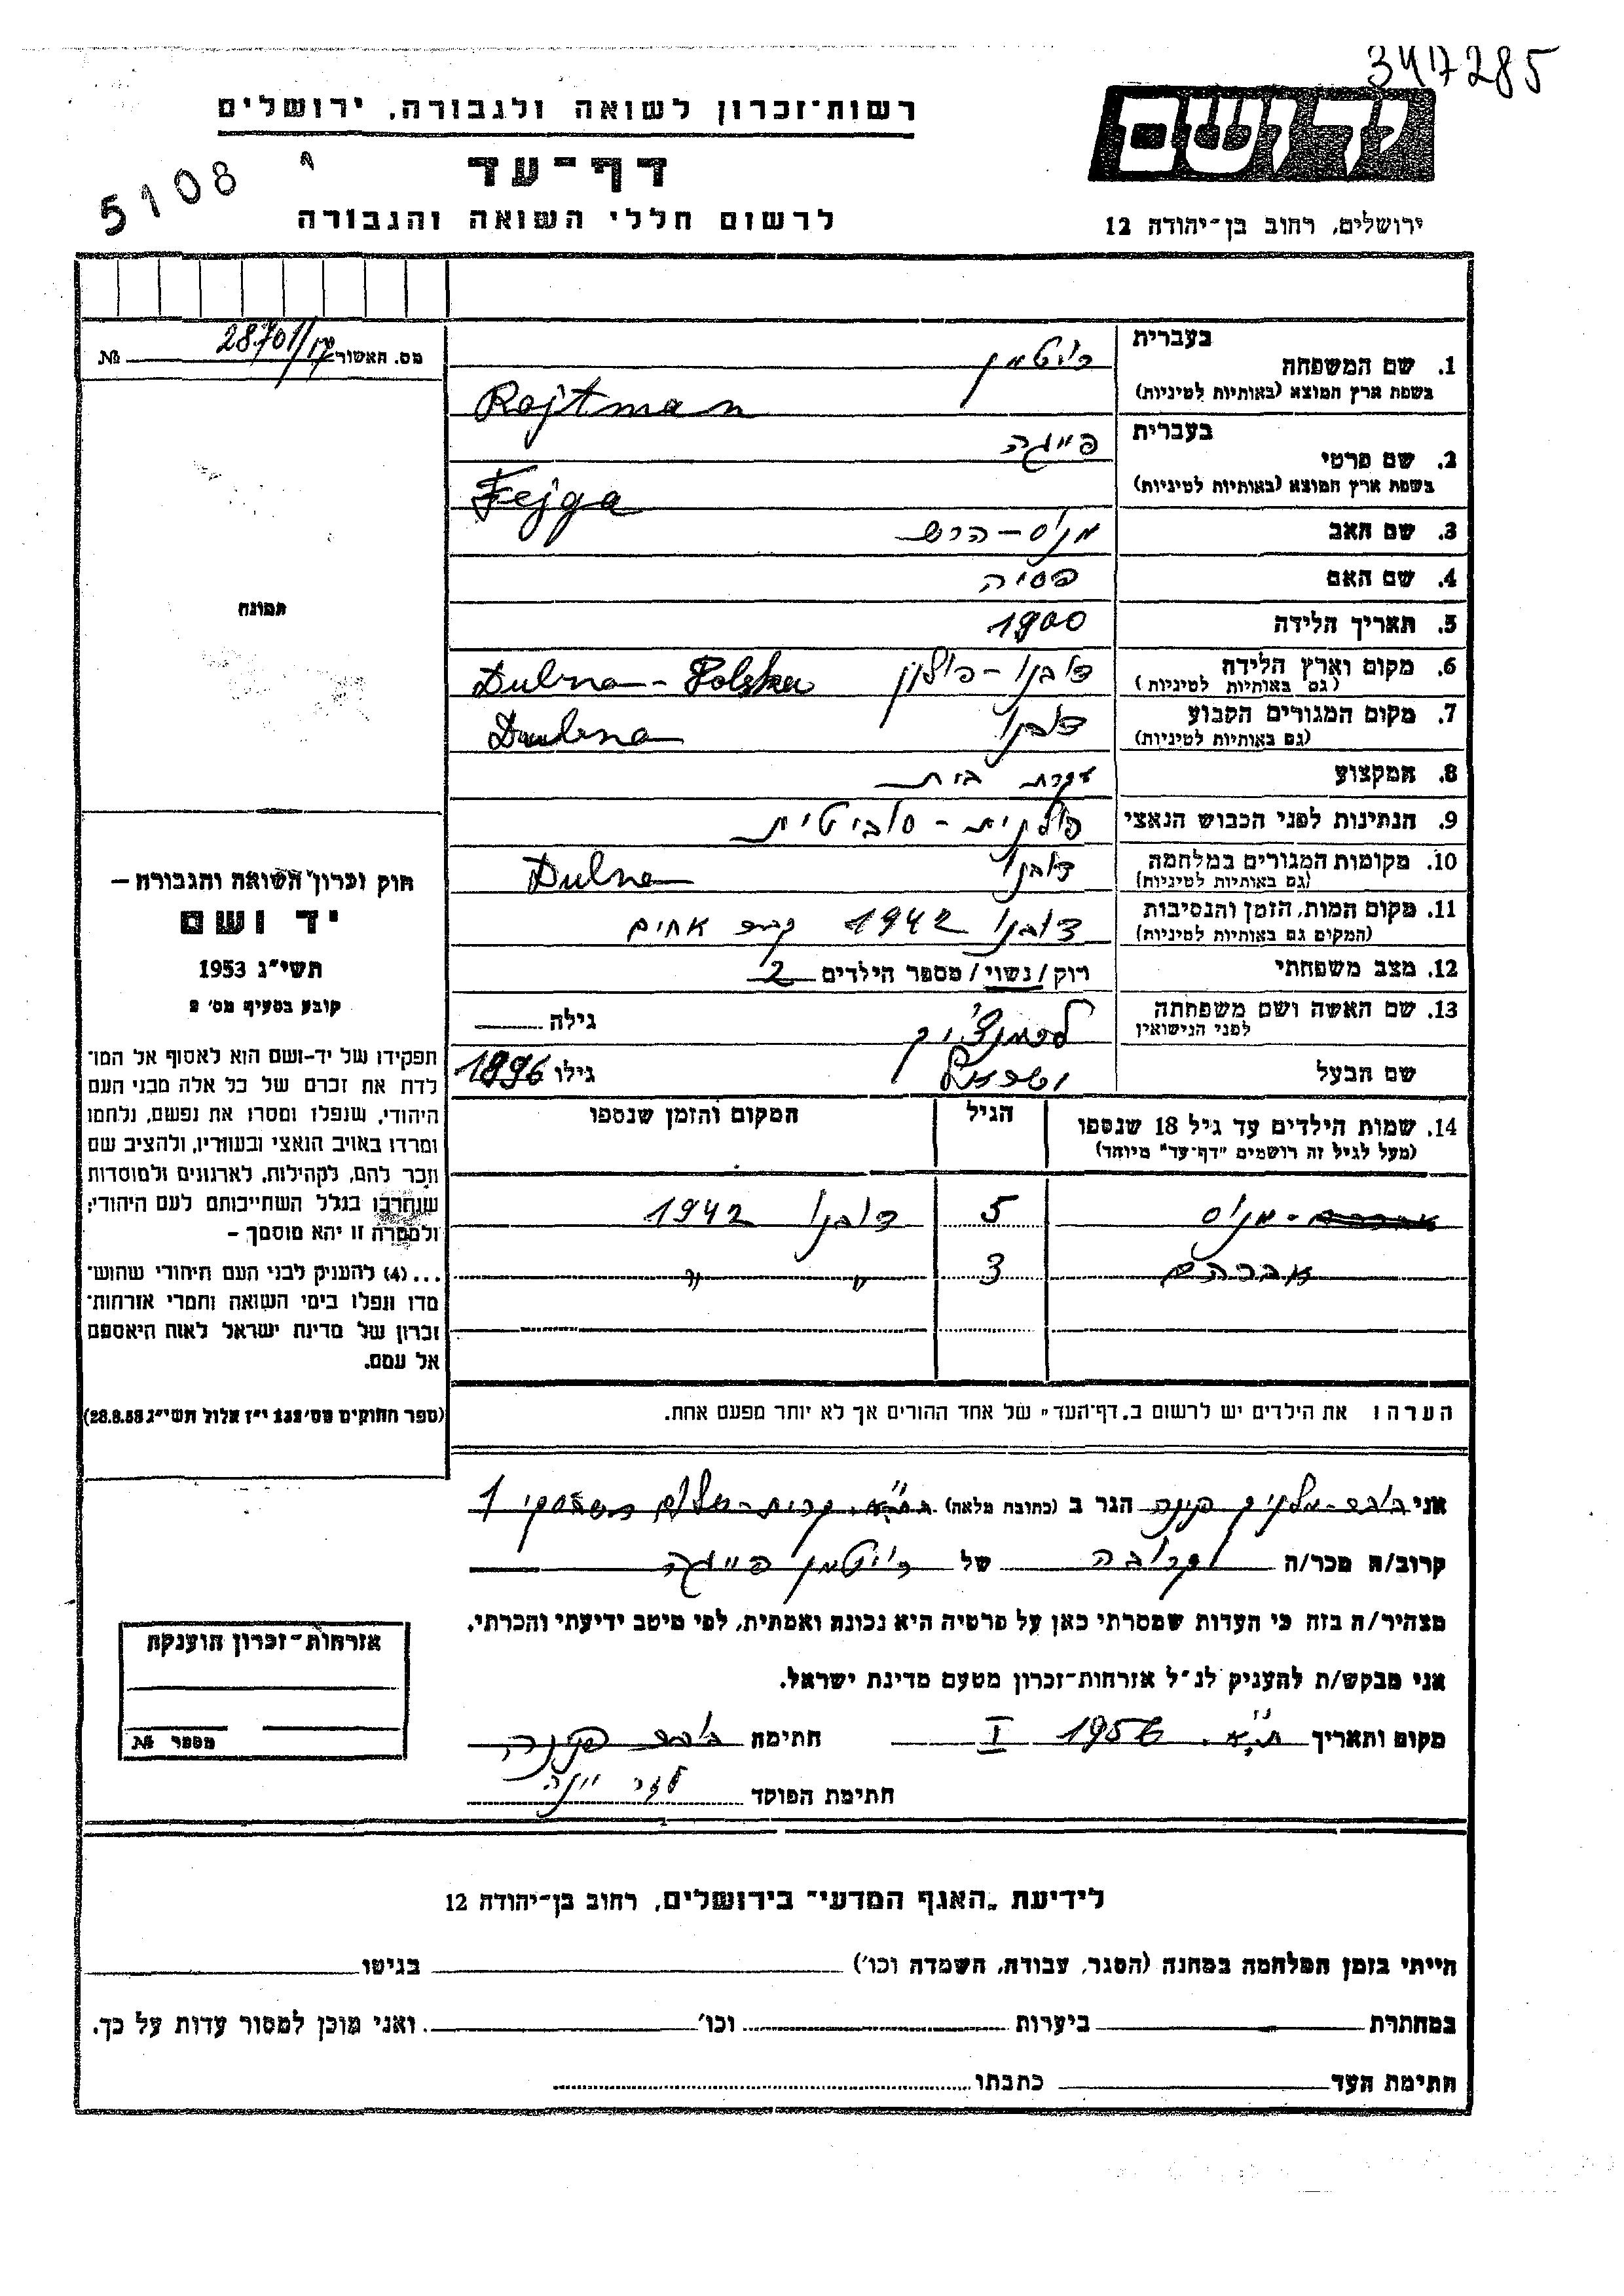 347285
רשות-זכרון לשואה ולגבורה, ירושלים
דף-עד
לרשום חללי השואה והגבורה
5108
יד ושם
ירושלים, רחוב בן-יהודה 12
מס. האשור 28701/17 №
בעברית
1. שם המשפחה רויטמן
בשפת ארץ המוצא (באותיות לטיניות) Rojtman
בעברית
2. שם פרטי פייגה
בשפת ארץ המוצא (באותיות לטיניות) Fejga
3. שם האב מניס-הרש
4. שם האם פסיה
5. תאריך הלידה 1900
6. מקום וארץ הלידה דובנו-פולין Dubna-Polska
(גם באותיות לטיניות)
7. מקום המגורים הקבוע דובנו Dubna
(גם באותיות לטיניות)
8. המקצוע עקרת בית
9. הנתינות לפני הכבוש הנאצי פולנית-סוביטית
10. מקומות המגורים במלחמה דובנו Dubna
(גם באותיות לטיניות)
11. מקום המות, הזמן והנסיבות דובנו 1942 קבר אחים
(המקום גם באותיות לטיניות)
12. מצב משפחתי רוק/נשוי/מספר הילדים 2
13. שם האשה ושם משפחתה
לפני הנישואין גילה
שם הבעל גילו 1896
14. שמות הילדים עד גיל 18 שנספו הגיל המקום והזמן שנספו
(מעל לגיל זה רושמים "דף-עד" מיוחד)
מניס 5 דובנו 1942
אברהם 3 " "
הערה: את הילדים יש לרשום ב„דף-העד" של אחד ההורים אך לא יותר מפעם אחת.
תמונה
חוק זכרון השואה והגבורה —
יד ושם
תשי"ג 1953
קובע בסעיף מס' 2
תפקידו של יד-ושם הוא לאסוף אל המו־
לדת את זכרם של כל אלה מבני העם
היהודי, שנפלו ומסרו את נפשם, נלחמו
ומרדו באויב הנאצי ובעוזריו, ולהציב שם
וזכר להם, לקהילות, לארגונים ולמוסדות
שנחרבו בגלל השתייכותם לעם היהודי;
ולמטרה זו יהא מוסמך —
...(4) להעניק לבני העם היהודי שהוש־
מדו ונפלו בימי השואה והמרי אזרחות־
זכרון של מדינת ישראל לאות היאספם
אל עמם.
(ספר החוקים מס' 132 י"ז אלול תשי"ג 28.8.53)
אני הגר ב (כתובת מלאה) ת"א. קרית-שלום 1
קרוב/ה מכר/ה קרובה של רויטמן פייגה
מצהיר/ה בזה כי העדות שמסרתי כאן על פרטיה היא נכונה ואמתית, לפי מיטב ידיעתי והכרתי.
אני מבקש/ת להעניק לנ"ל אזרחות-זכרון מטעם מדינת ישראל.
מקום ותאריך ת"א. I חתימה
חתימת הפוקד
אזרחות-זכרון הוענקה
מספר №
לידיעת „האגף המדעי" בירושלים, רחוב בן-יהודה 12
הייתי בזמן המלחמה במחנה (הסגר, עבודה, השמדה וכו') בגיטו
במחתרת ביערות וכו' ואני מוכן למסור עדות על כך.
חתימת העד כתבתו